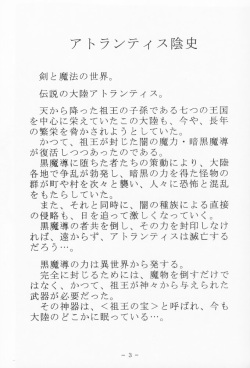 アトランティス陰史
剣と魔法の世界。
伝説の大陸アトランティス。
天から降った祖王の子孫である七つの王国
を中心に栄えていたこの大陸も、今や、長年
の繁栄を脅かされようとしていた。
かつて、祖王が封じた闇の魔力・暗黒魔導
が復活しつつあったのである。
黒魔導に堕ちた者たちの策動により、大陸
各地で争乱が勃発し、暗黒の力を得た怪物の
群が町や村を次々と襲い、人々に恐怖と混乱
をもたらしていた。
また、それと同時に、闇の種族による直接
の侵略も、日を追って激しくなっていく。
黒魔導の者共を倒し、その力を封印しなけ
れば、遠からず、アトランティスは滅亡する
だろう…。
黒魔導の力は異世界から発する。
完全に封じるためには、魔物を倒すだけで
はなく、かつて王祖が神々から与えられた
武器が必要だった。
その神器は、＜祖王の宝＞と呼ばれ、今も
大陸のどこかに眠っている…。
－３－